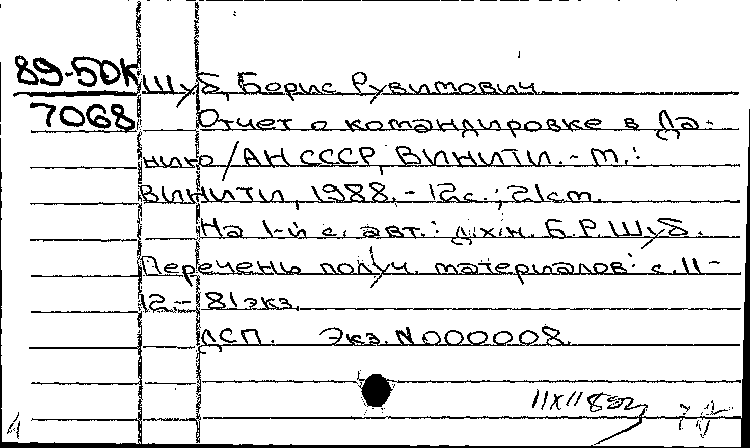 89-50К Шуб, Борис Рувимович
7068 Отчет о командировке в Да-
нию / АН СССР, ВИНИТИ. - М.:
ВИНИТИ, 1988. - 12с.; 21см.
На 1-й с. авт.: д.х.н. Б.Р. Шуб.
Перечень получ. материалов: с. 11-
12. - 81 экз.
ДСП. Экз. N 000008.